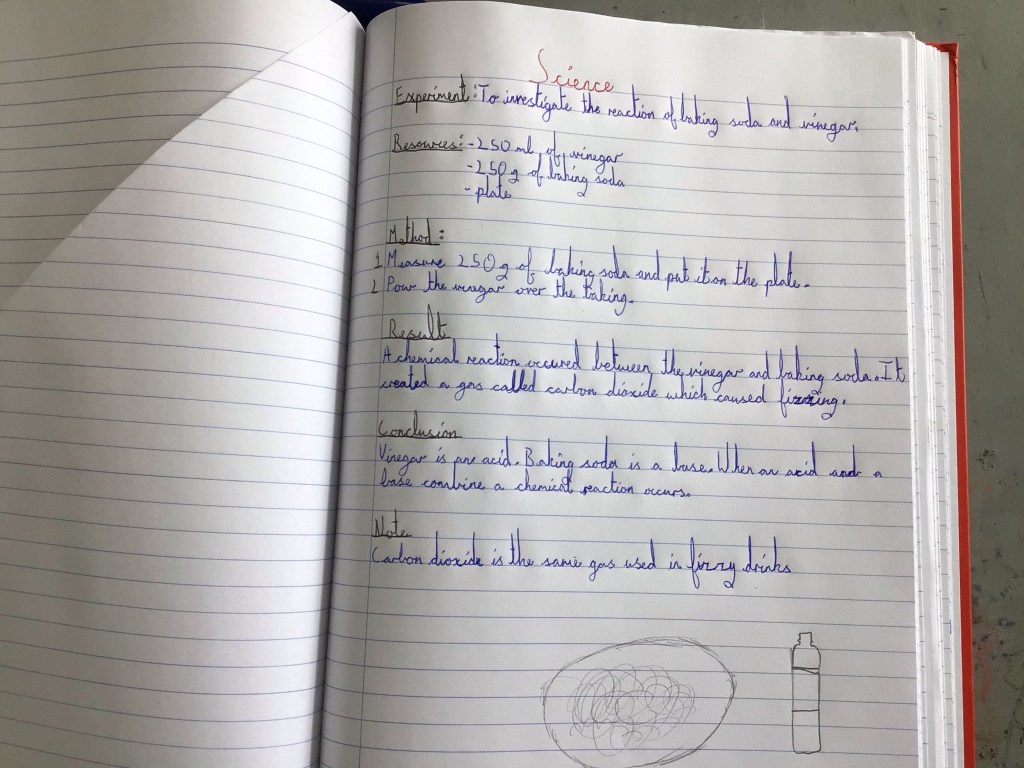 Science
Experiment: To investigate the reaction of baking soda and vinegar.
Resources: - 250 ml of vinegar
- 250g of baking soda
- plate
Method:
1 Measure 250g of baking soda and put it on the plate.
2 Pour the vinegar over the baking.
Result
A chemical reaction occured between the vinegar and baking soda. It
created a gas called carbon dioxide which caused fizzing.
Conclusion
Vinegar is an acid. Baking soda is a base. When an acid and a
base combine a chemical reaction occurs.
Note
Carbon dioxide is the same gas used in fizzy drinks